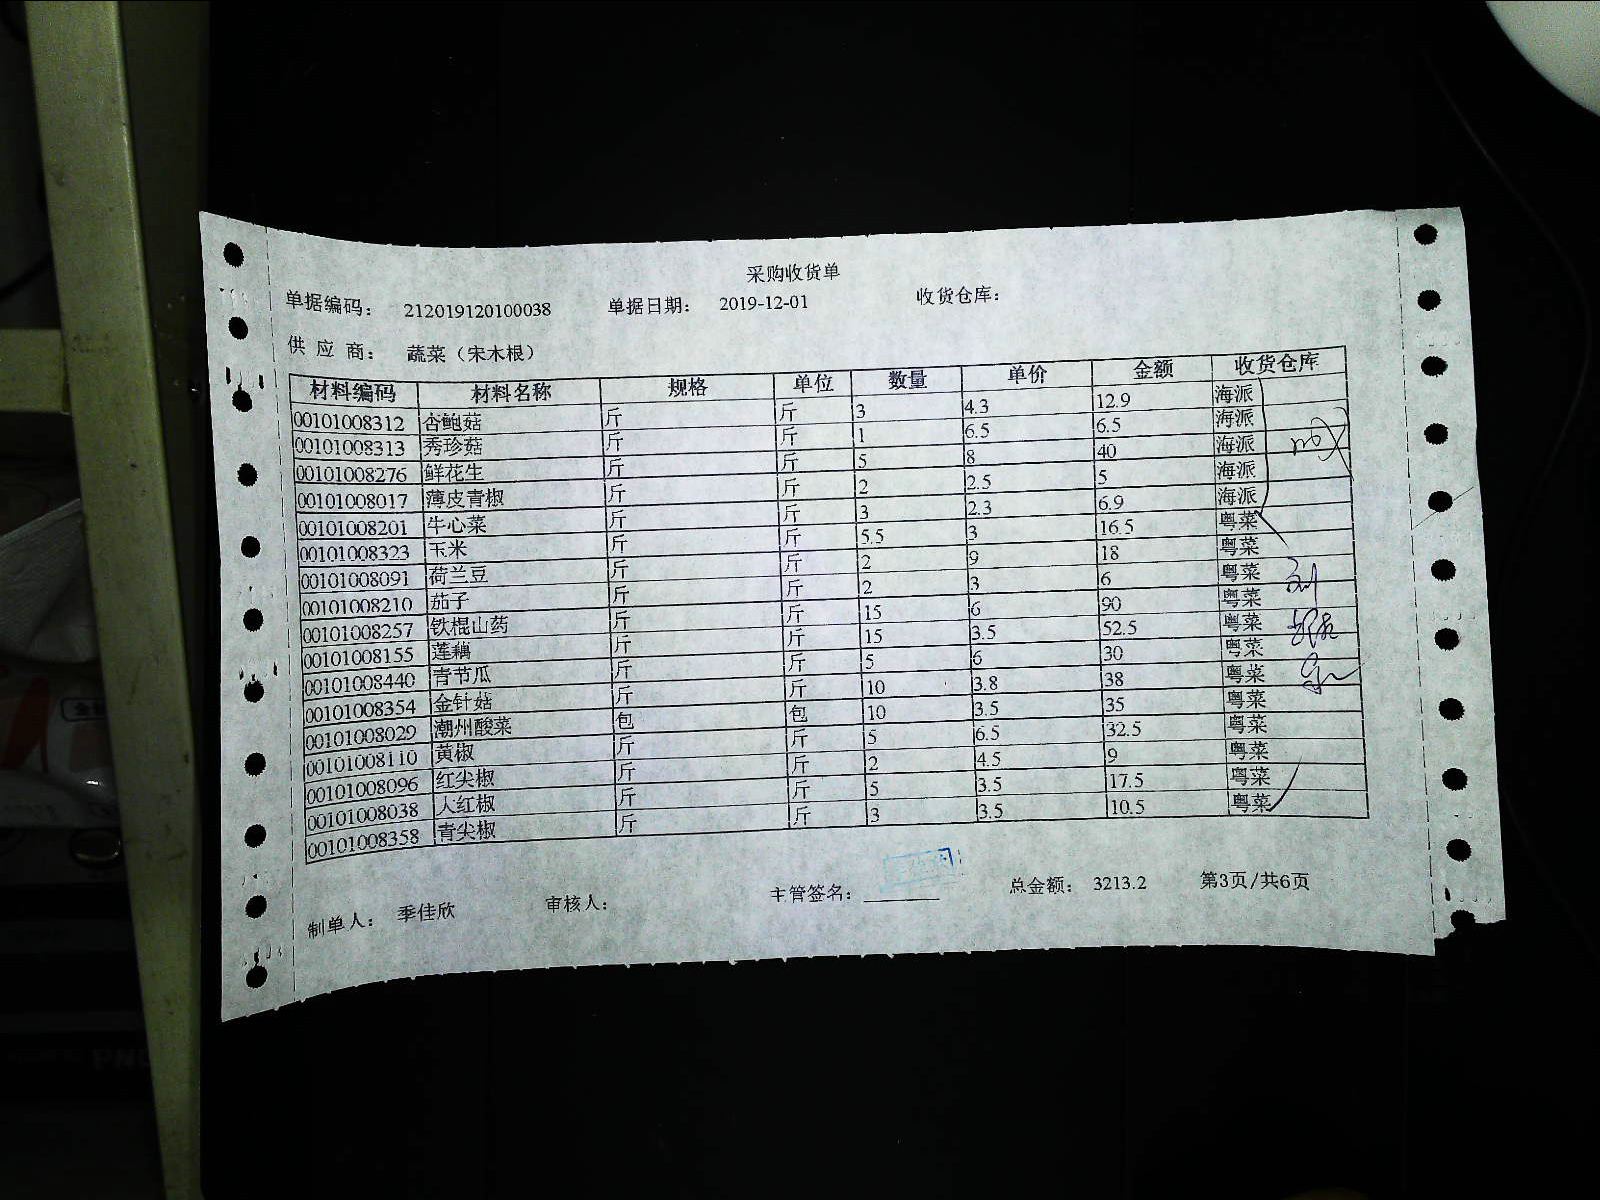 采购收货单
单据编码： 212019120100038 单据日期： 2019-12-01 收货仓库：
供 应 商： 蔬菜（宋木根）
材料编码 材料名称 规格 单位 数量 单价 金额 收货仓库
00101008312 杏鲍菇 斤 斤 3 4.3 12.9 海派
00101008313 秀珍菇 斤 斤 1 6.5 6.5 海派
00101008276 鲜花生 斤 斤 5 8 40 海派
00101008017 薄皮青椒 斤 斤 2 2.5 5 海派
00101008201 牛心菜 斤 斤 3 2.3 6.9 海派
00101008323 玉米 斤 斤 5.5 3 16.5 粤菜
00101008091 荷兰豆 斤 斤 2 9 18 粤菜
00101008210 茄子 斤 斤 2 3 6 粤菜
00101008257 铁棍山药 斤 斤 15 6 90 粤菜
00101008155 莲藕 斤 斤 15 3.5 52.5 粤菜
00101008440 青节瓜 斤 斤 5 6 30 粤菜
00101008354 金针菇 斤 斤 10 3.8 38 粤菜
00101008029 潮州酸菜 包 包 10 3.5 35 粤菜
00101008110 黄椒 斤 斤 5 6.5 32.5 粤菜
00101008096 红尖椒 斤 斤 2 4.5 9 粤菜
00101008038 大红椒 斤 斤 5 3.5 17.5 粤菜
00101008358 青尖椒 斤 斤 3 3.5 10.5 粤菜
制单人： 季佳欣 审核人： 主管签名： 总金额： 3213.2 第3页/共6页